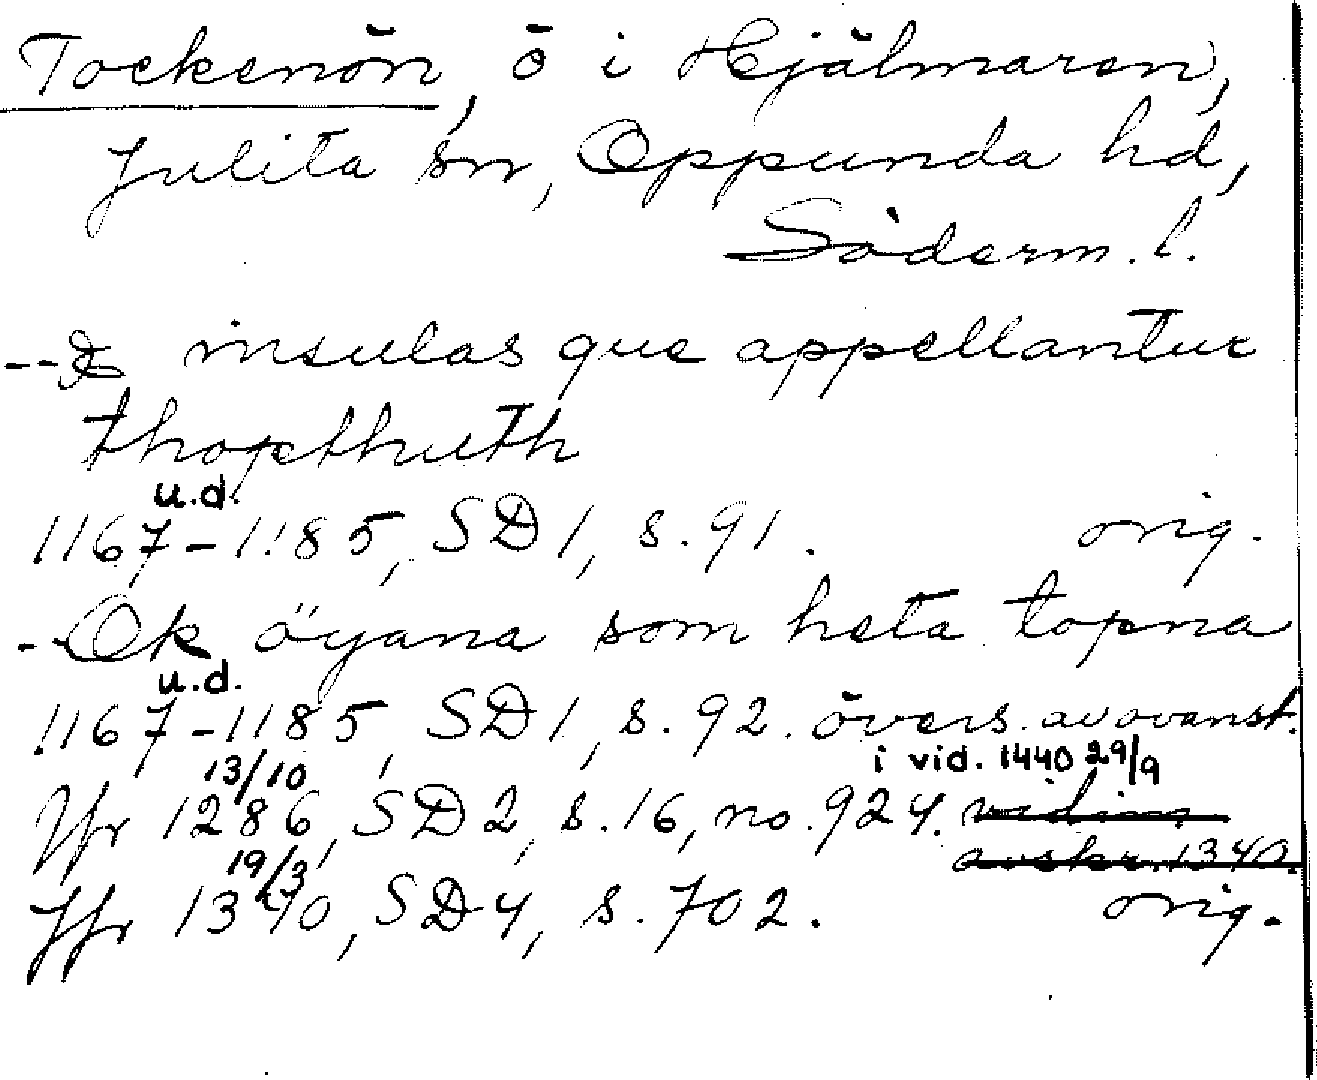 Tockenön, ö i Hjälmaren,
Julita sn, Oppunda hd,
Söderm. l.
--& insulas que appellantur
thopthuth
u.d.
1167-1185, SD 1, s. 91. orig.
-Ok öyana som heta topna
u.d.
1167-1185, SD 1, s. 92. övers. av ovanst.
13/10 i vid. 1440 29/9
Jfr 1286, SD 2, s. 16, no. 924. vidim
19/3 avskr. 1340.
Jfr 1340, SD 4, s. 702. orig.